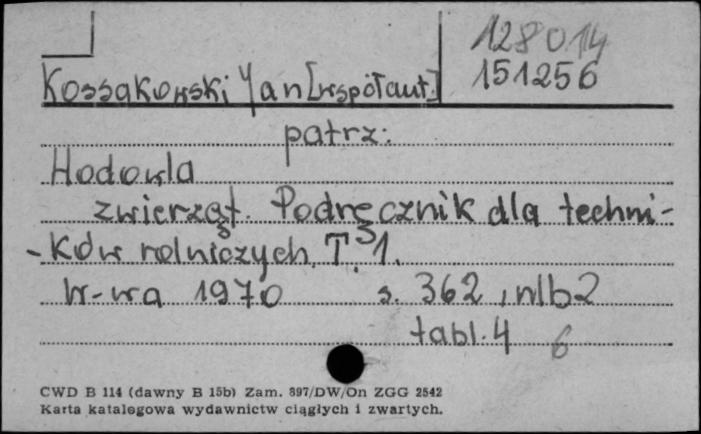 128014
151256
Kossakowski Jan [współaut.]
patrz:
Hodowla
zwierząt. Podręcznik dla techni-
-ków rolniczych. T. 1.
W-wa 1970 s. 362, nlb 2
tabl. 4 6
CWD B 114 (dawny B 15b) Zam. 897/DW/On ZGG 2542
Karta katalogowa wydawnictw ciągłych i zwartych.